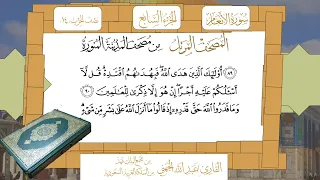 سورة الأنعام
الجزء السابع
المصحف المرتل من مصحف المدينة المنورة
٨٩ أُوْلَٰٓئِكَ ٱلَّذِينَ هَدَى ٱللَّهُ فَبِهُدَىٰهُمُ ٱقْتَدِهْ قُل لَّآ
أَسْـَٔلُكُمْ عَلَيْهِ أَجْرًا إِنْ هُوَ إِلَّا ذِكْرَىٰ لِلْعَٰلَمِينَ ٩٠
وَمَا قَدَرُوا۟ ٱللَّهَ حَقَّ قَدْرِهِۦٓ إِذْ قَالُوا۟ مَآ أَنزَلَ ٱللَّهُ عَلَىٰ بَشَرٍ مِّن شَىْءٍ
القارئ عبد الله الجهني